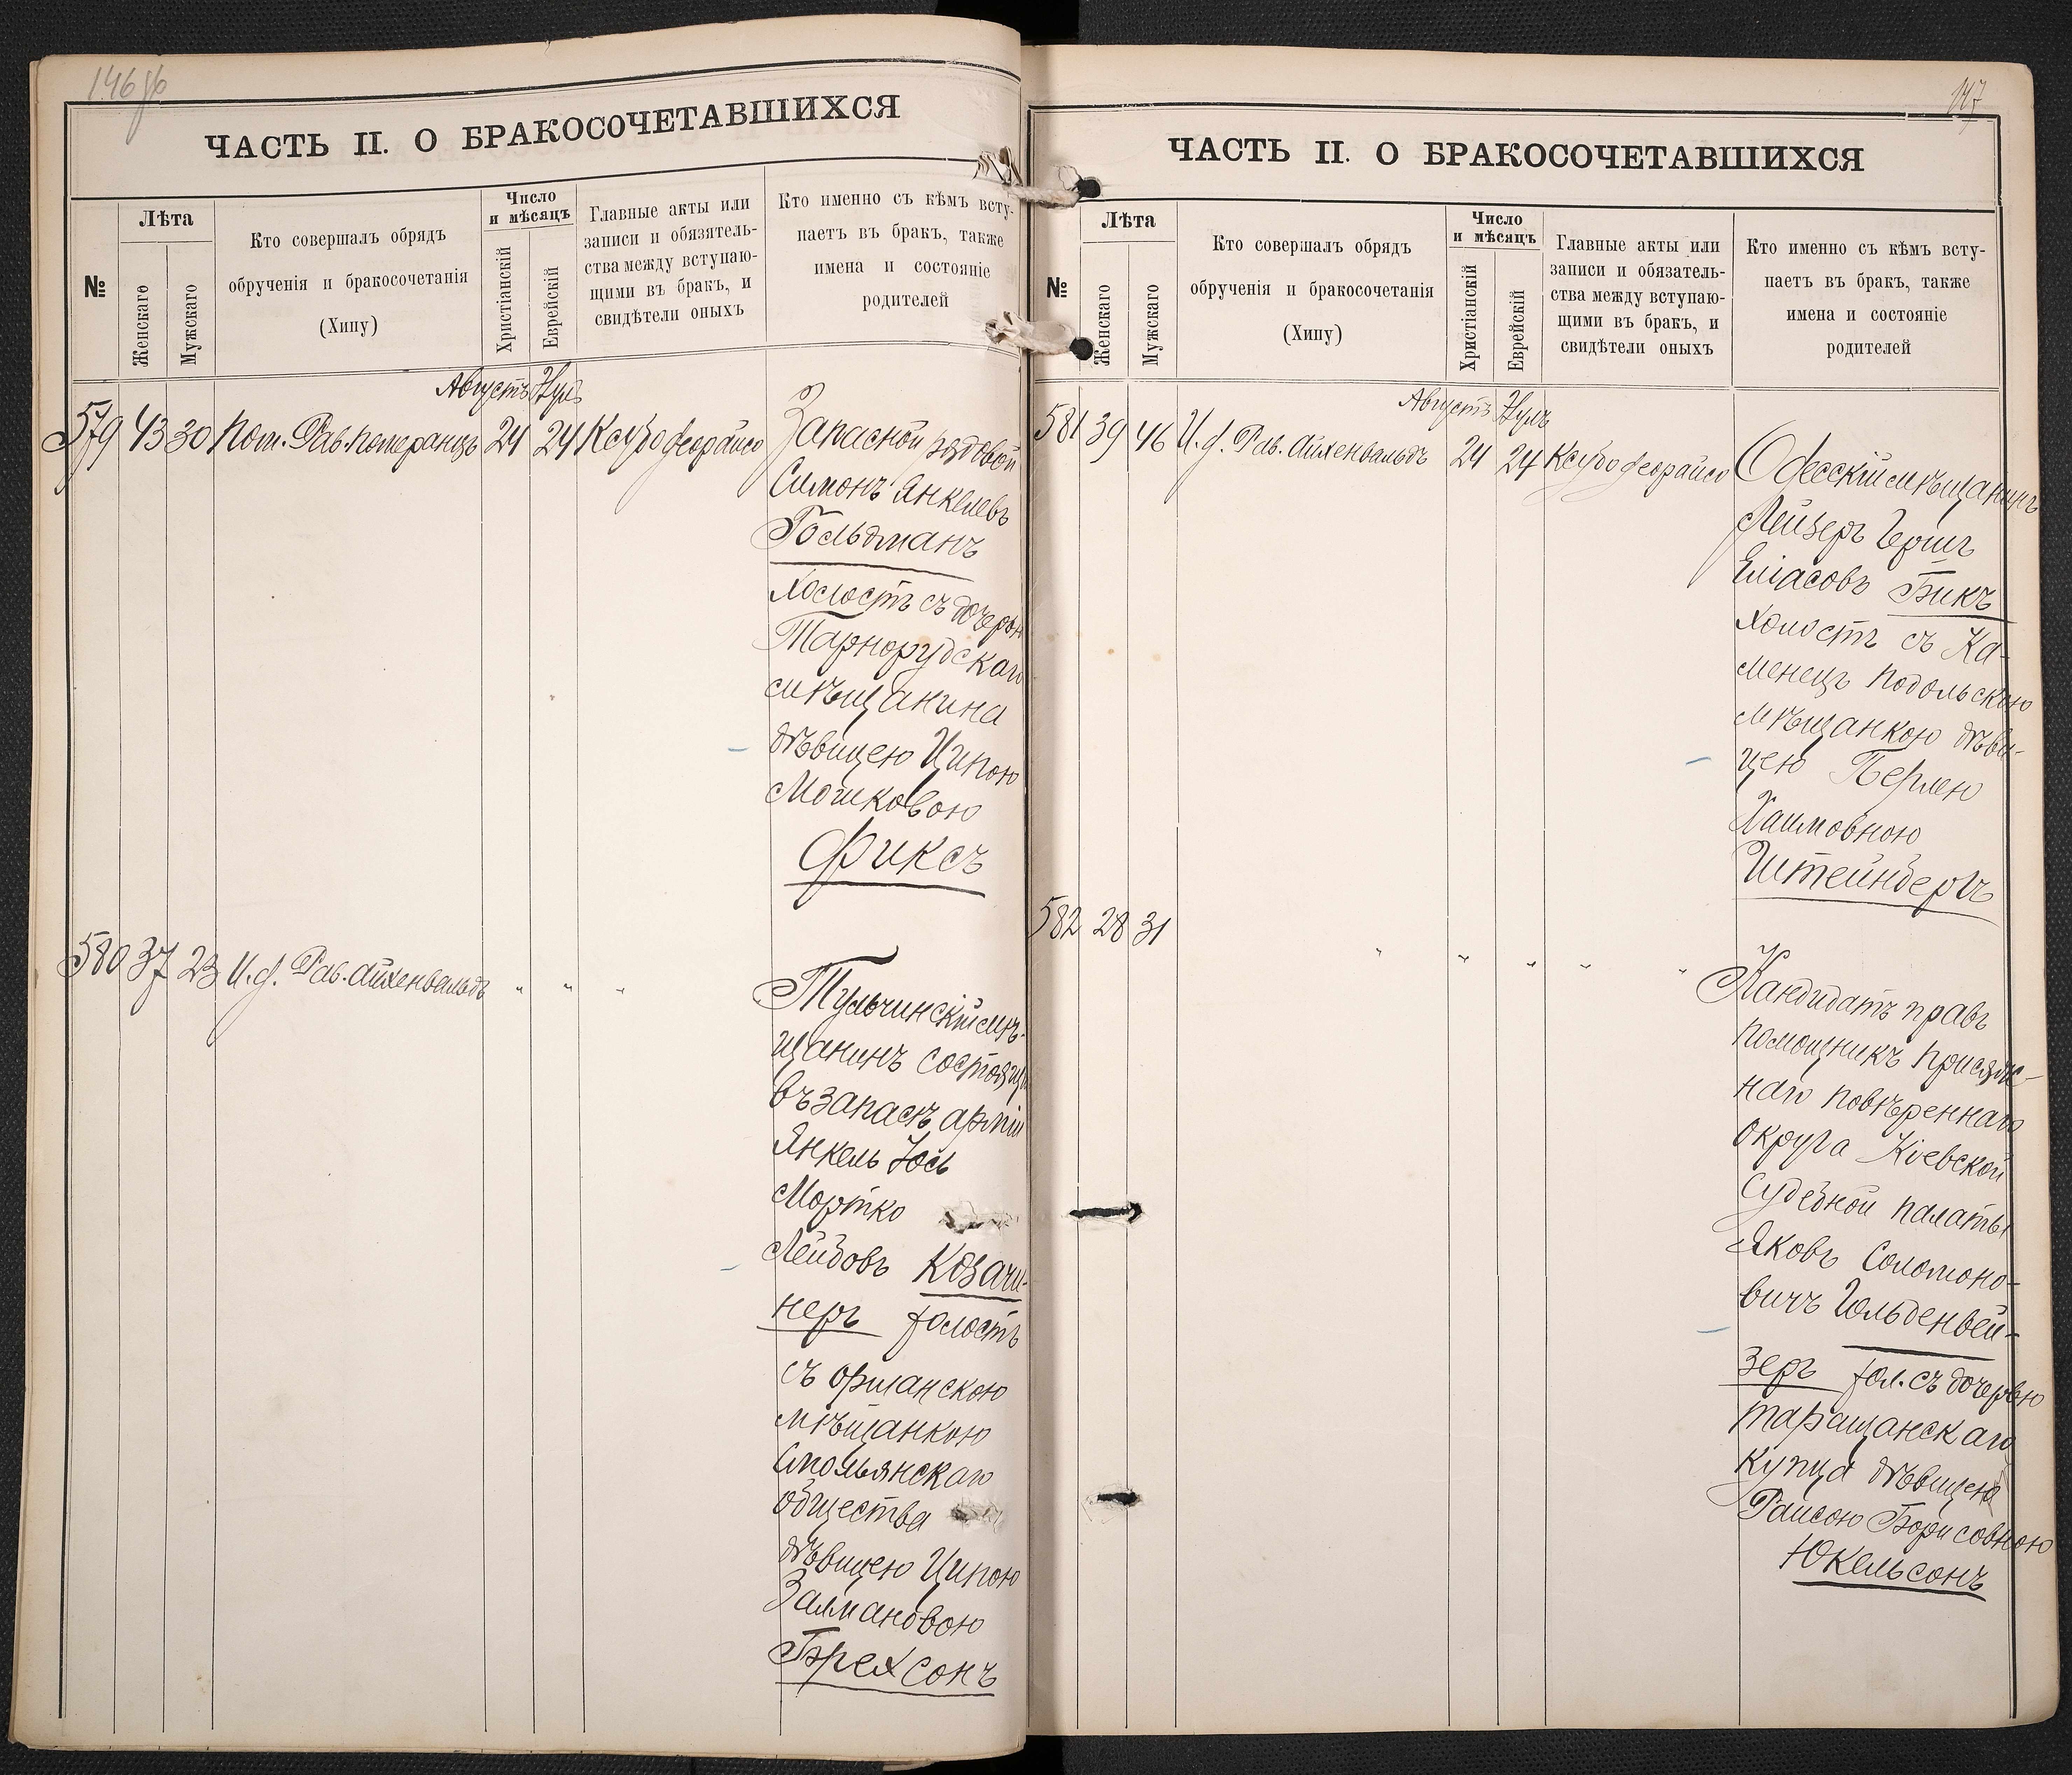 146 об
ЧАСТЬ II. О БРАКОСОЧЕТАВШИХСЯ
№
Лѣта
Женскаго
Мужскаго
Кто совершалъ обрядъ
обрученія и бракосочетанія
(Хипу)
Число
и мѣсяцъ
Христіанскій
Еврейскій
Главные акты или
записи и обязатель-
ства между вступаю-
щими въ бракъ, и
свидѣтели оныхъ
Кто именно съ кѣмъ всту-
паетъ въ бракъ, также
имена и состояніе
родителей
Августъ
579 43 30 Пом. Рав. Померанцъ 24 24 Ксубо
Запасной рядовой
Симонъ Янкелевъ
Гольдманъ
холостъ съ дочерью
Тарнорудскаго
мѣщанина
дѣвицею Ципою
Мошковою
Фиксъ
580 37 23 И. д. Рав. Айхенвальдъ " " "
Тульчинскій мѣ-
щанинъ состоящій
въ запасѣ арміи
Янкель Іось
Мортко
Лейбовъ Козачи-
неръ холостъ
съ оршанскою
мѣщанкою
Смольянскаго
общества
дѣвицею Ципою
Залмановою
Брехсонъ
147
ЧАСТЬ II. О БРАКОСОЧЕТАВШИХСЯ
№
Лѣта
Женскаго
Мужскаго
Кто совершалъ обрядъ
обрученія и бракосочетанія
(Хипу)
Число
и мѣсяцъ
Христіанскій
Еврейскій
Главные акты или
записи и обязатель-
ства между вступаю-
щими въ бракъ, и
свидѣтели оныхъ
Кто именно съ кѣмъ всту-
паетъ въ бракъ, также
имена и состояніе
родителей
Августъ
581 39 46 И. д. Рав. Айхенвальдъ 24 24 Ксубо
Одесскій мѣщанинъ
Лейзеръ Гершъ
Еліасовъ Бикъ
холостъ съ Ка-
менецъ Подольскою
мѣщанкою дѣви-
цею Перлею
Хаимовною
Штейнбергъ
582 28 31 " " " " "
Кандидатъ правъ
помощникъ присяж-
наго повѣреннаго
округа Кіевской
судебной палаты
Яковъ Соломоно-
вичъ Гольденвей-
зеръ хол. съ дочерью
таращанскаго
купца дѣвицею
Раисою Борисовною
Юкельсонъ